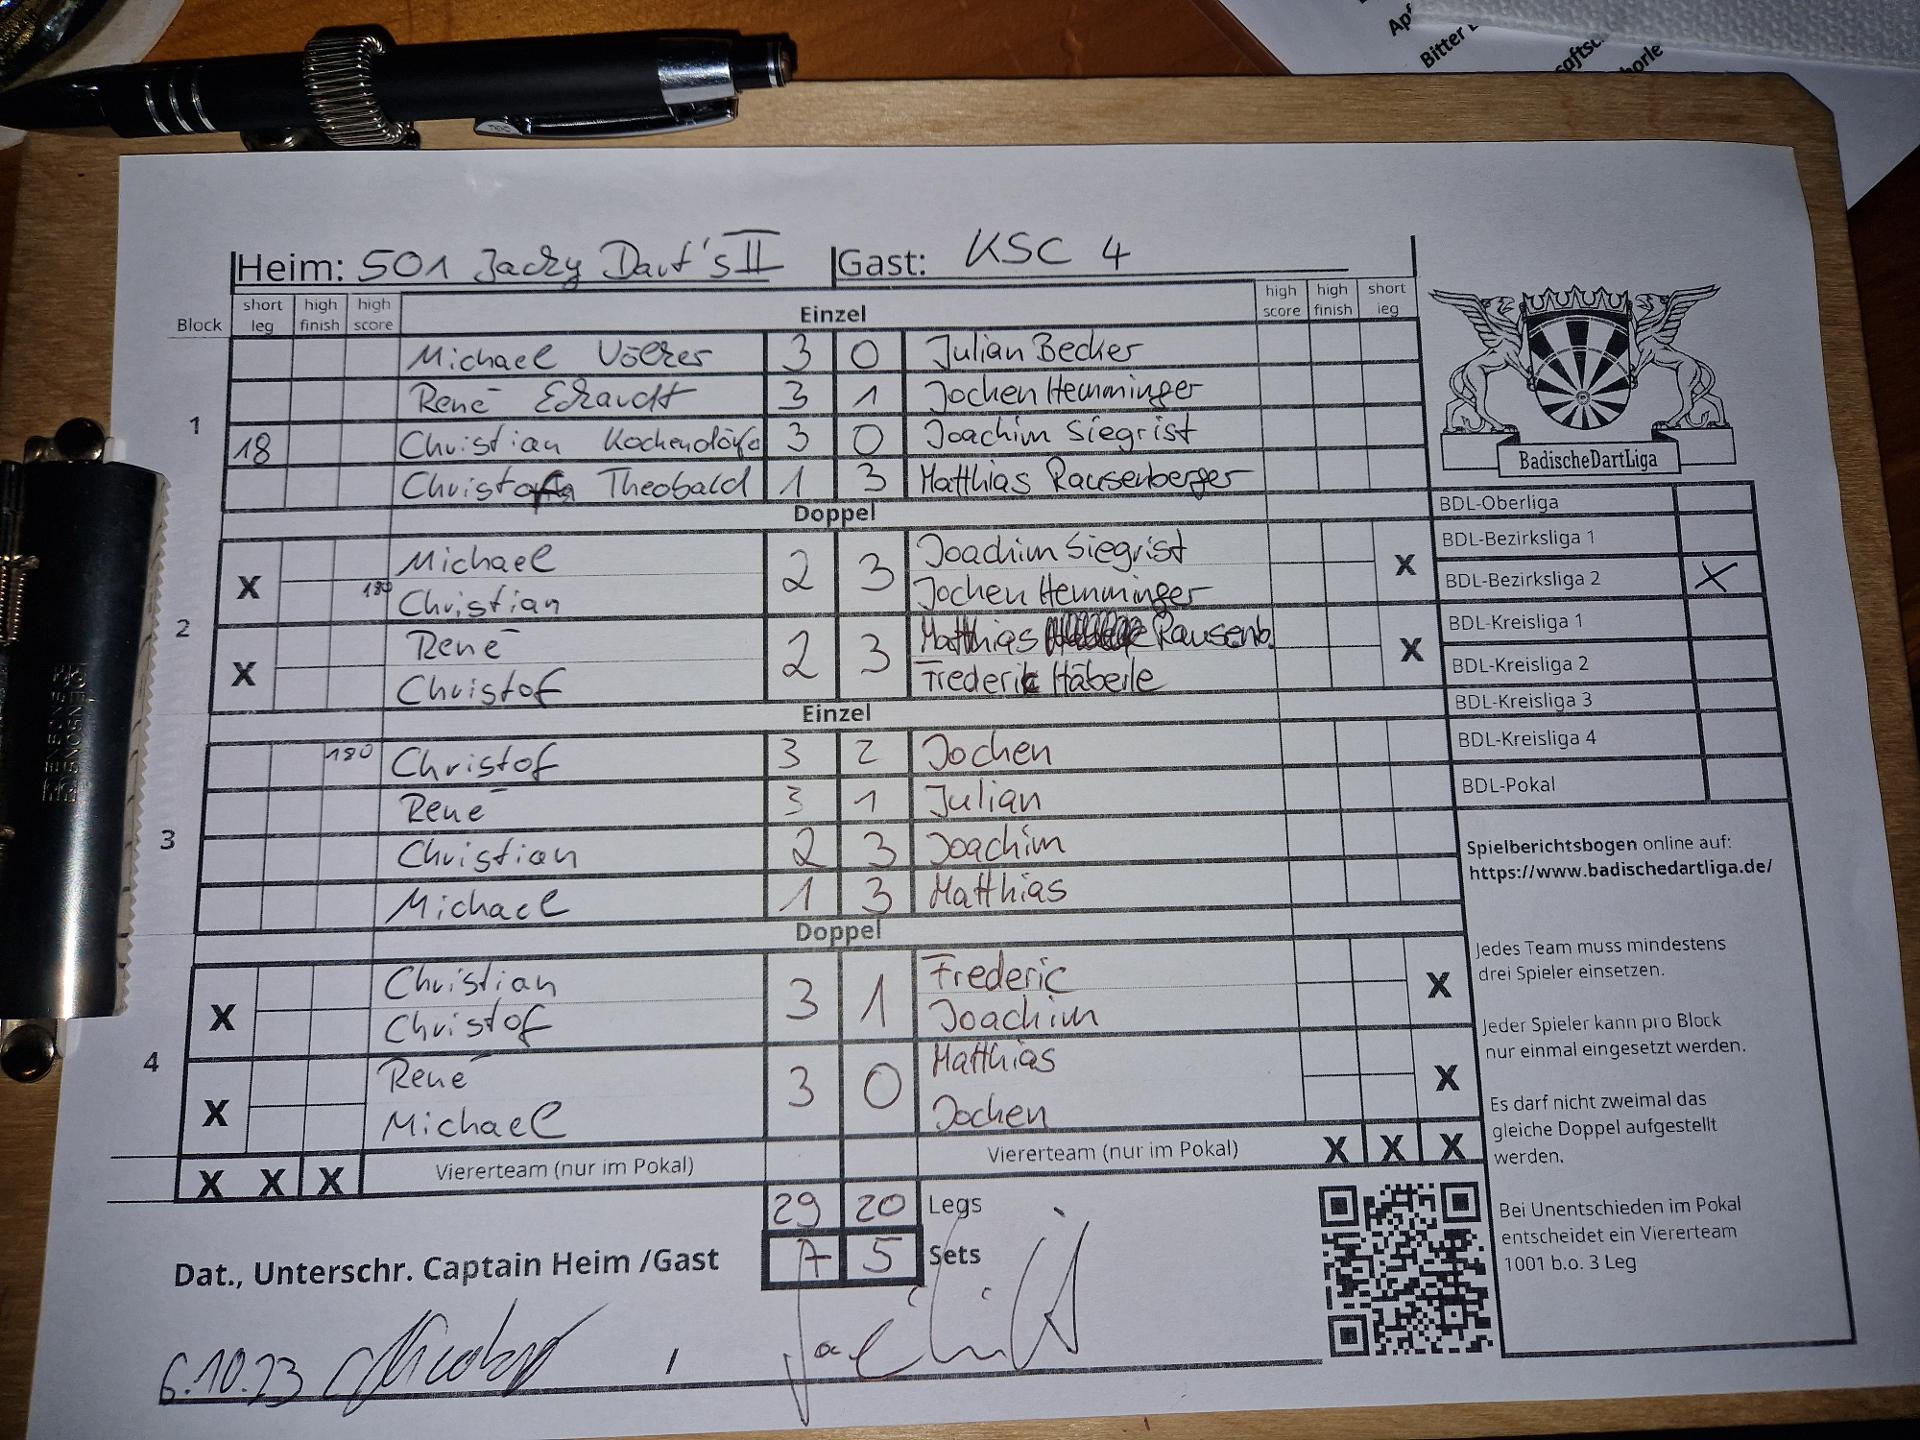 Bitter
Heim: 501 Jacky Dart's II Gast: KSC 4
Block short leg high finish high score Einzel high score high finish short leg
1
Michael Völker 3 0 Julian Becker
René Eckardt 3 1 Jochen Hemminger
18 Christian Kochendörfe 3 0 Joachim Siegrist
Christof Theobald 1 3 Matthias Rausenberger
Doppel
2
X Michael 2 3 Joachim Siegrist X
180 Christian Jochen Hemminger
X René 2 3 Matthias Rausenb. X
Christof Frederic Häberle
Einzel
3
180 Christof 3 2 Jochen
René 3 1 Julian
Christian 2 3 Joachim
Michael 1 3 Matthias
Doppel
4
X Christian 3 1 Frederic X
Christof Joachim
X René 3 0 Matthias X
Michael Jochen
X X X Viererteam (nur im Pokal) Viererteam (nur im Pokal) X X X
29 20 Legs
7 5 Sets
Dat., Unterschr. Captain Heim /Gast
6.10.23 /
BadischeDartLiga
BDL-Oberliga
BDL-Bezirksliga 1
BDL-Bezirksliga 2 X
BDL-Kreisliga 1
BDL-Kreisliga 2
BDL-Kreisliga 3
BDL-Kreisliga 4
BDL-Pokal
Spielberichtsbogen online auf:
https://www.badischedartliga.de/
Jedes Team muss mindestens
drei Spieler einsetzen.
Jeder Spieler kann pro Block
nur einmal eingesetzt werden.
Es darf nicht zweimal das
gleiche Doppel aufgestellt
werden.
Bei Unentschieden im Pokal
entscheidet ein Viererteam
1001 b.o. 3 Leg